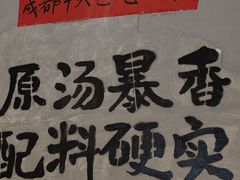 成都
原汤暴香
配料硬实